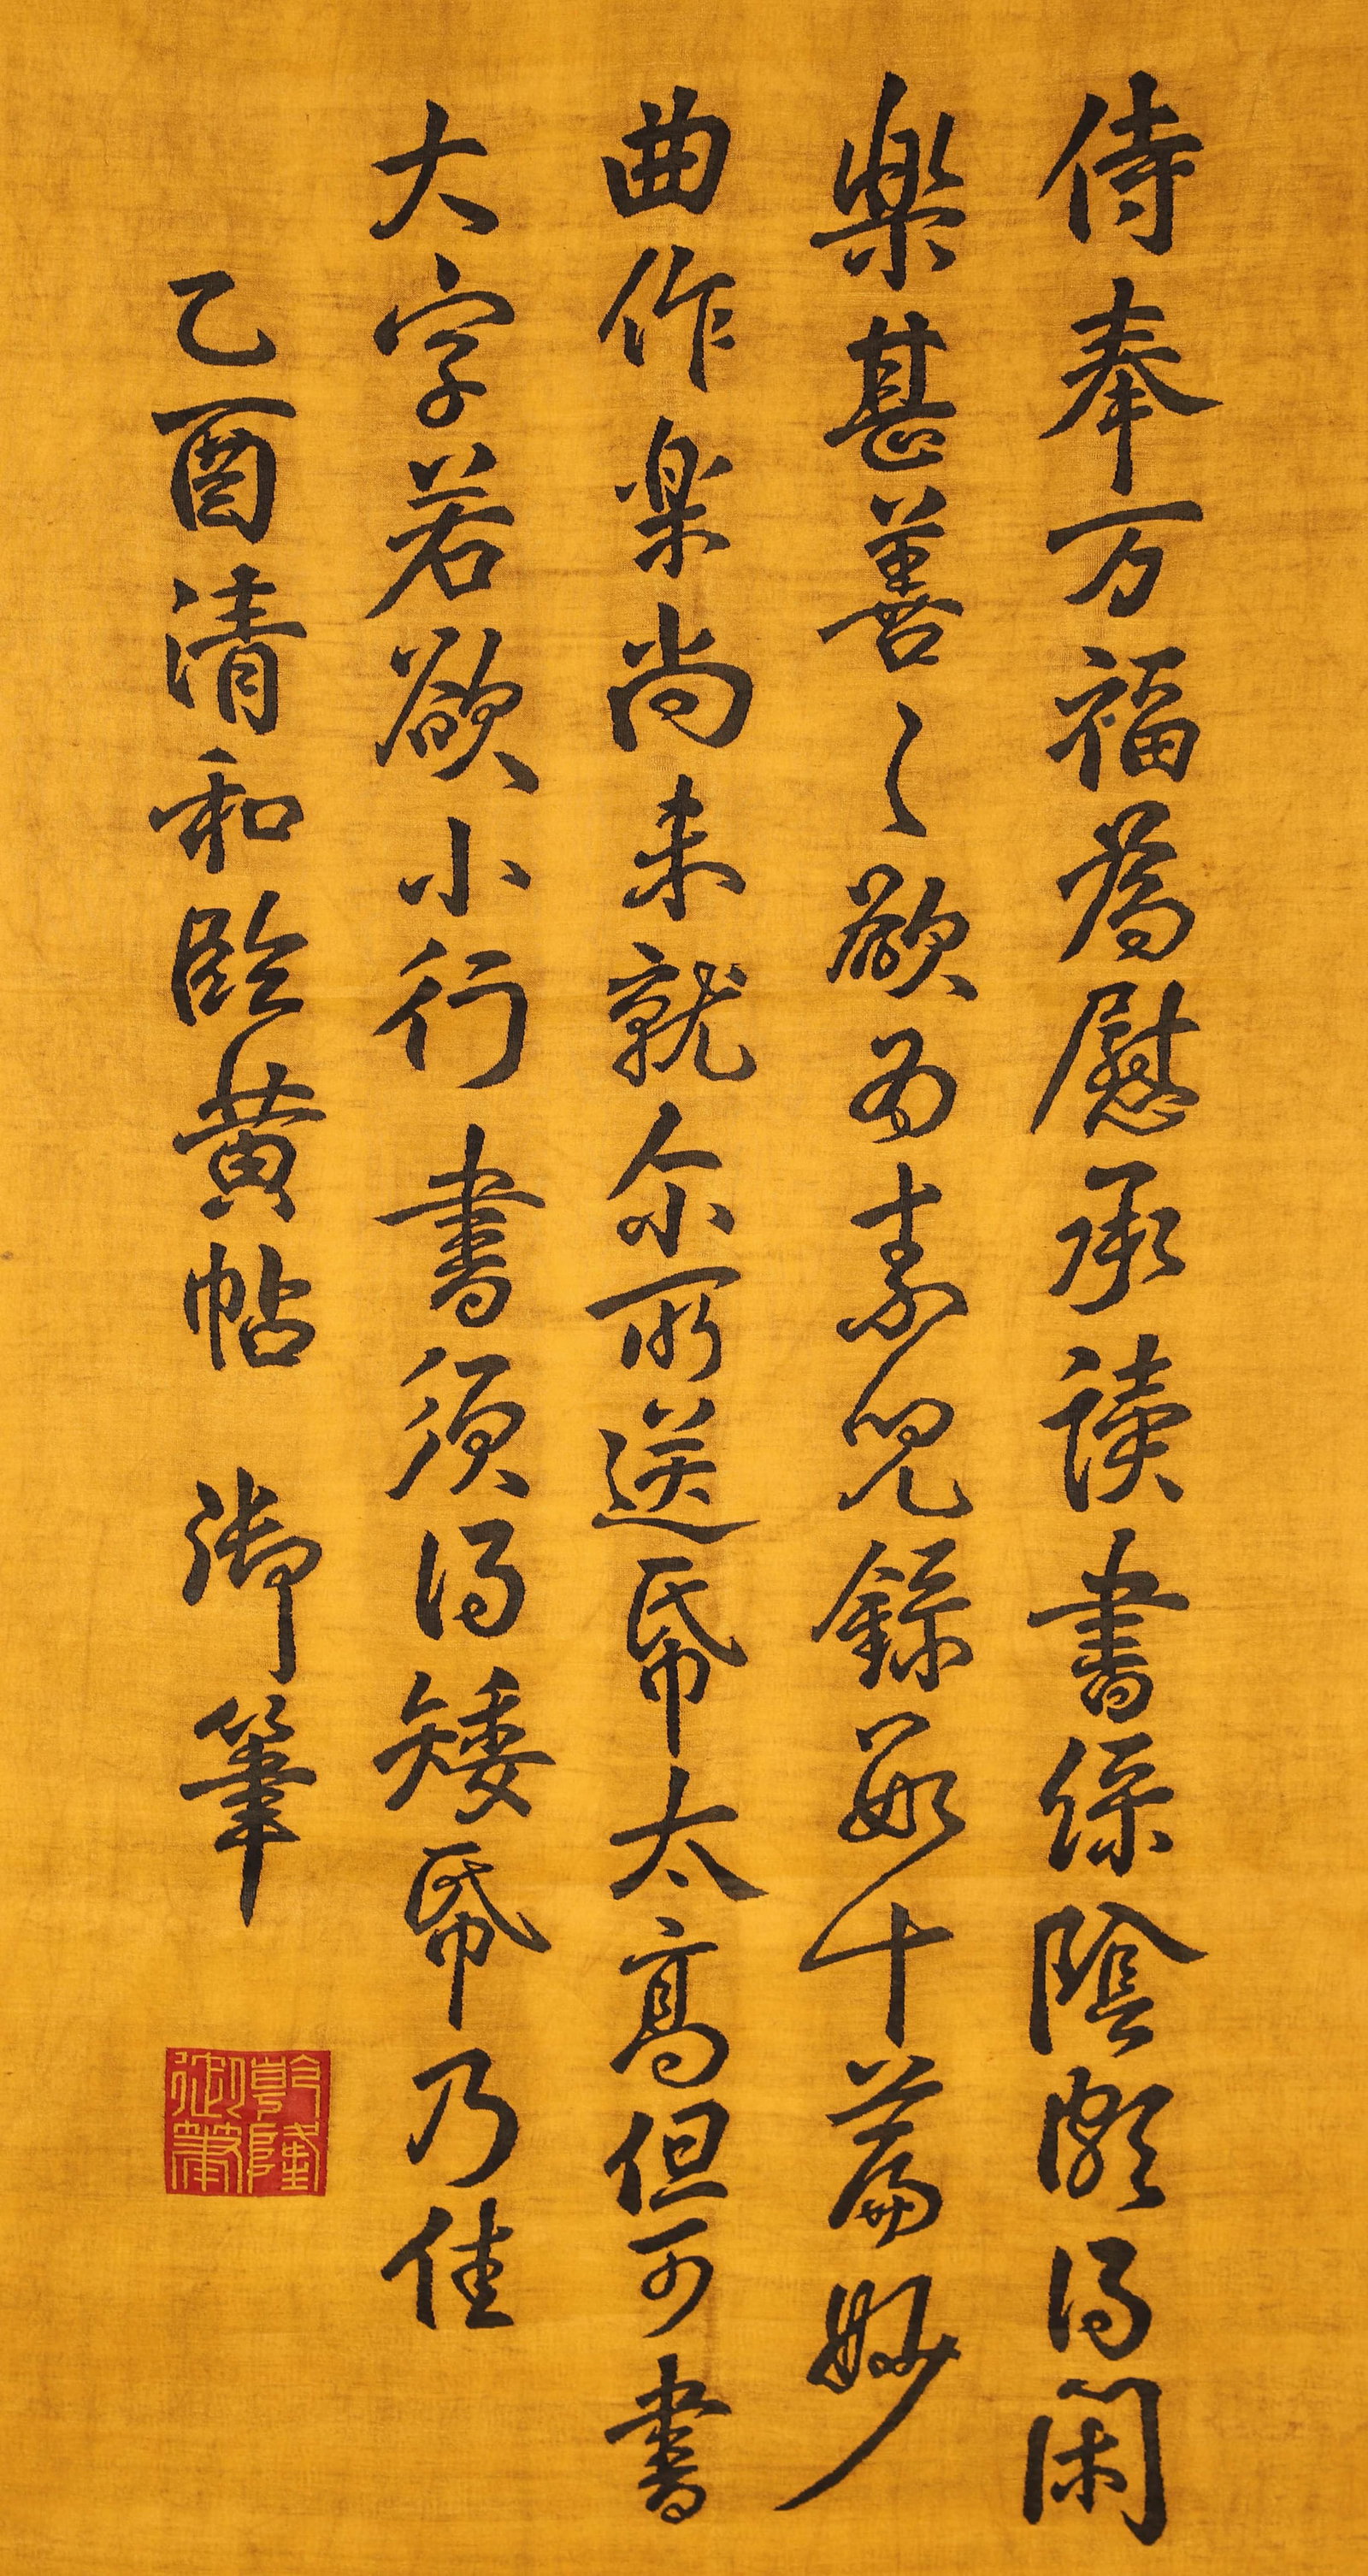 侍奉万福為慰承读書綠陰頗得閑
樂甚善〻欲為素兒録數十篇妙
曲作樂尚未就尒所送帋太高但可書
大字若欲小行書須得矮帋乃佳
乙酉清和臨黄帖 御筆
乾隆御筆